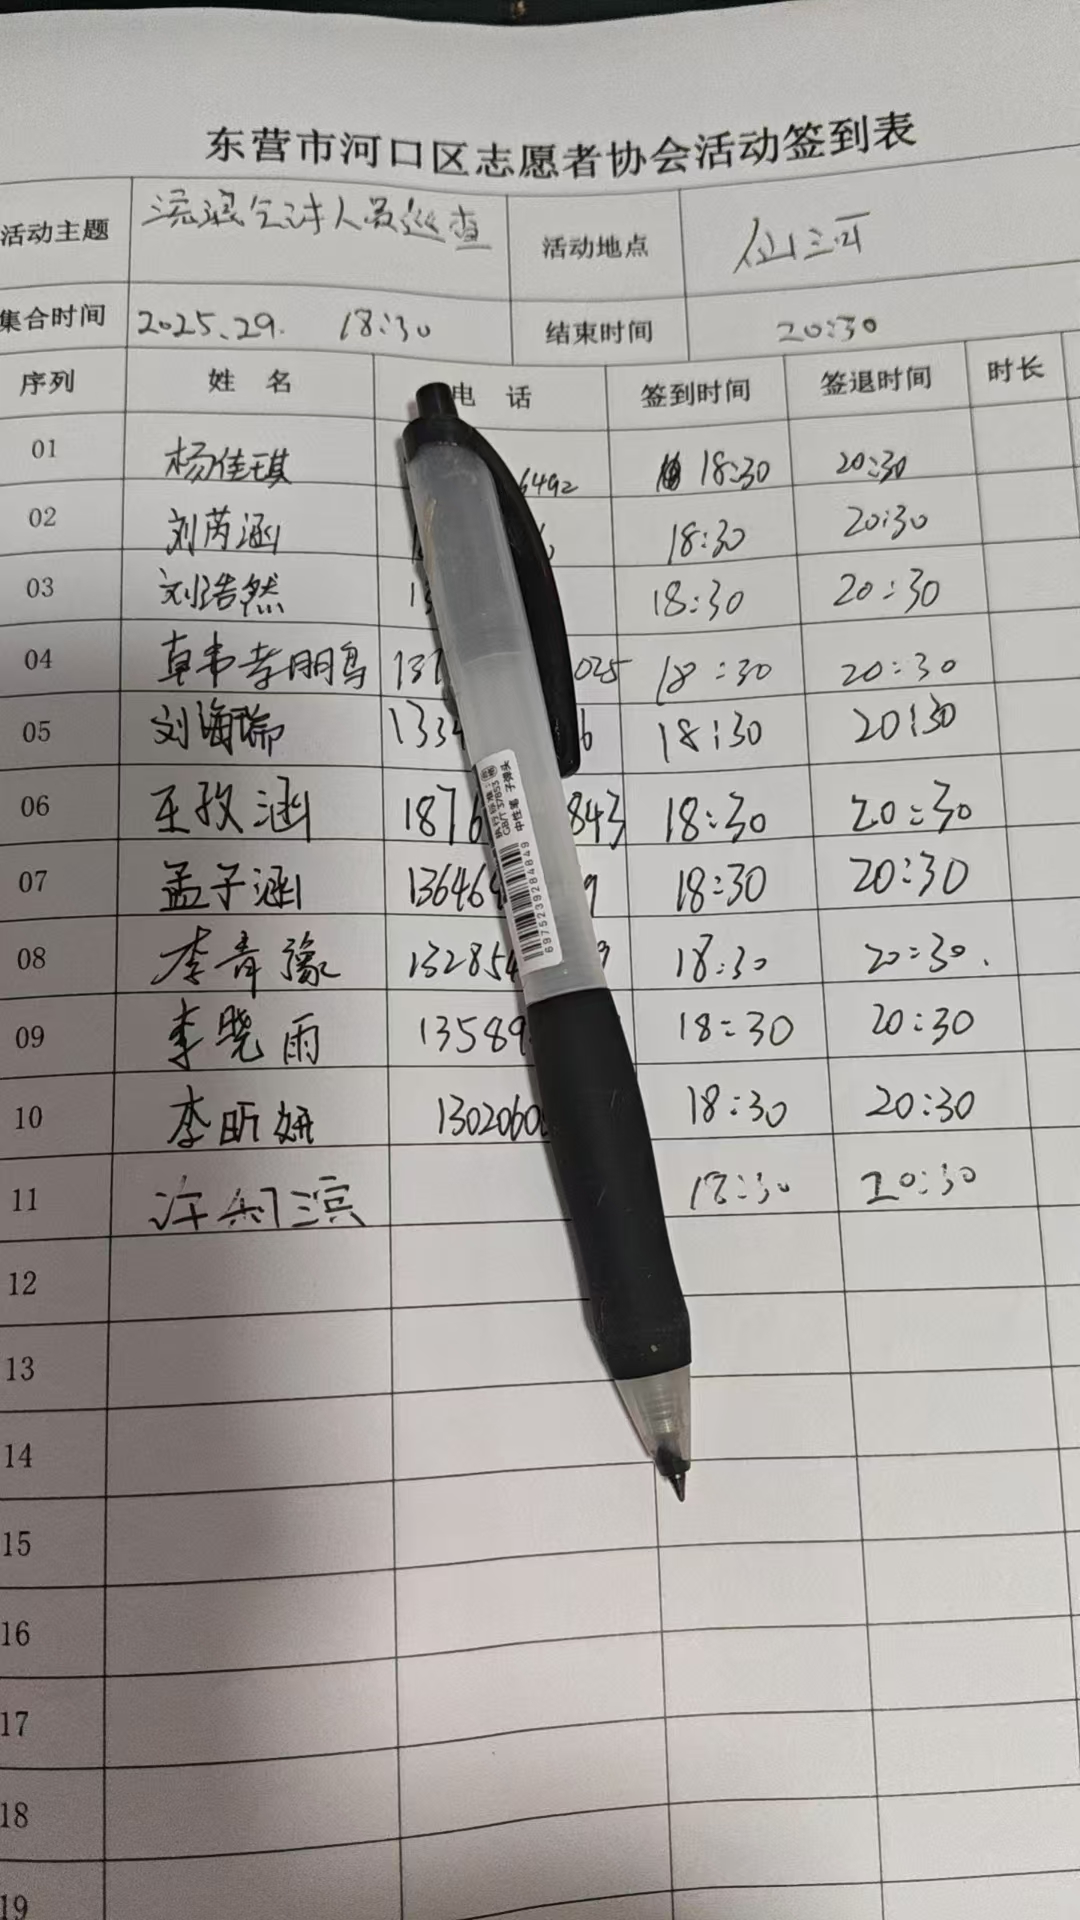 东营市河口区志愿者协会活动签到表
活动主题 流浪乞讨人员巡查 活动地点 仙河
集合时间 2025.29. 18:30 结束时间 20:30
序列 姓 名 电 话 签到时间 签退时间 时长
01 杨佳琪 6492 18:30 20:30
02 刘芮涵 18:30 20:30
03 刘浩然 13 18:30 20:30
04 卓韦李朋鸟 137 025 18:30 20:30
05 刘海瑞 1334 6 18:30 20:30
06 王孜涵 1876 843 18:30 20:30
07 孟子涵 13646 9 18:30 20:30
08 李青豫 13285 9 18:30 20:30.
09 李晓雨 13589 18:30 20:30
10 李昕妍 1302060 18:30 20:30
11 许 滨 18:30 20:30
12
13
14
15
16
17
18
19
执行标准:
GB/T 37853
中性笔 子弹头
6975239284849